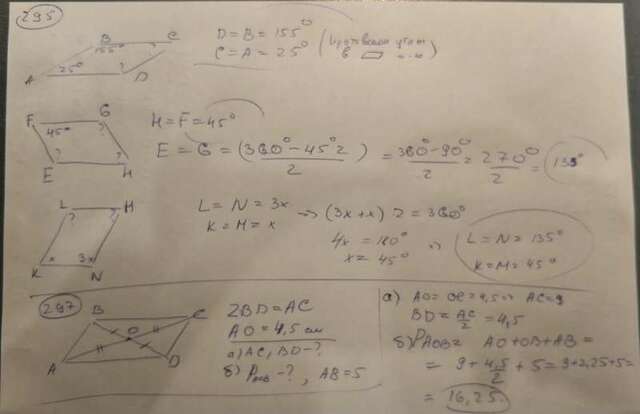 295
B C
155°
25°
A D
D = B = 155°
C = A = 25°
F G
45° ?
? ?
E H
H = F = 45°
E = G = (360° - 45°·2)/2 = 360° - 90°/2 = 270°/2 = 135°
L M
? ?
x 3x
K N
L = N = 3x
K = M = x
⇒ (3x + x) 2 = 360°
4x = 180°
x = 45°
⇒ L = N = 135°
K = M = 45°
297
B C
O
A D
2BD = AC
AO = 4,5 см
а) AC, BD - ?
б) P - ?, AB = 5
а) AO = OC = 4,5 ⇒ AC = 9
BD = AC/2 = 4,5
б) PAOB = AO + OB + AB =
= 9 + 4,5/2 + 5 = 9 + 2,25 + 5 =
= 16,25